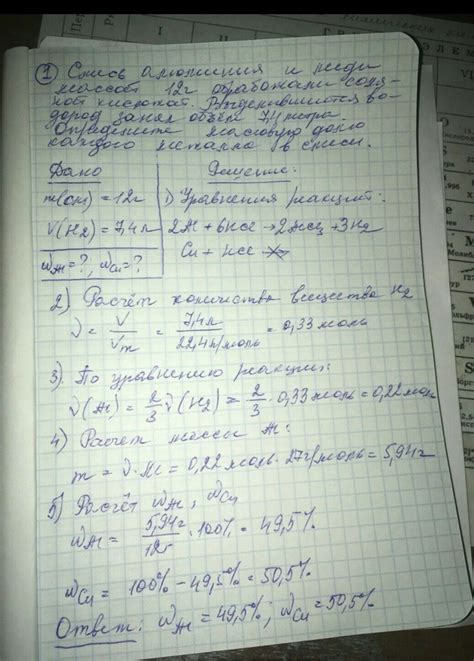 ① Смесь алюминия и меди
массой 12г обработали соля-
ной кислотой. Выделившийся во-
дород занял объём 7,4 литра.
Определите массовую долю
каждого металла в смеси.
Дано
Решение:
m(см) = 12г
V(H₂) = 7,4л
ω Al = ?, ω Cu = ?
1) Уравнения реакций:
2Al + 6HCl → 2AlCl₃ + 3H₂
Cu + HCl
2) Расчёт количества вещества H₂
ν = V/Vm = 7,4л/22,4л/моль = 0,33 моль
3) По уравнению реакции:
ν(Al) = 2/3 ν(H₂) = 2/3 · 0,33моль = 0,22моль
4) Расчет массы Al:
m = ν · M = 0,22моль · 27г/моль = 5,94г
5) Расчёт ω Al, ω Cu
ω Al = 5,94г/12г · 100% = 49,5%
ω Cu = 100% - 49,5% = 50,5%
Ответ: ω Al = 49,5%; ω Cu = 50,5%